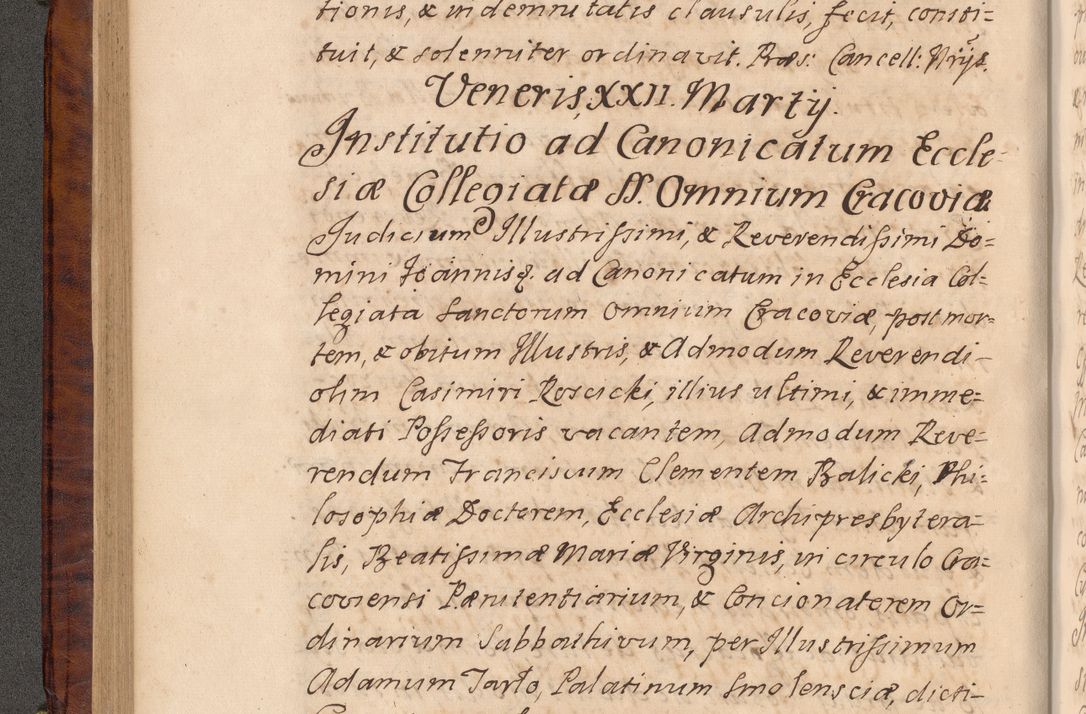 tionis, & indemnitatis clausulis, fecit, consti=
tuit, & solenniter ordinavit. Præs: Cancell: Nrjs.
Veneris, XXII. Martij.
Institutio ad Canonicatum Eccle=
siæ Collegiatæ SS. Omnium Cracoviæ.
Judicium Illustrissimi, & Reverendissimi Do=
mini Joannis &. ad Canonicatum in Ecclesia Col=
legiata Sanctorum Omnium Cracoviæ, post mor=
tem, & obitum Illustris, & Admodum Reverendi
olim Casimiri Roscicki, illius ultimi, & imme=
diati Possessoris vacantem, Admodum Reve=
rendum Franciscum Clementem Balicki, Phi=
losophiæ Doctorem, Ecclesiæ Archipresbytera=
lis, Beatissimæ Mariæ Virginis, in circulo Cra=
coviensi Pænitentiarium, & Concionatorem Or=
dinarium Sabbathivum, per Illustrissimum
Adamum Tarło, Palatinum Smolensciæ, dicti